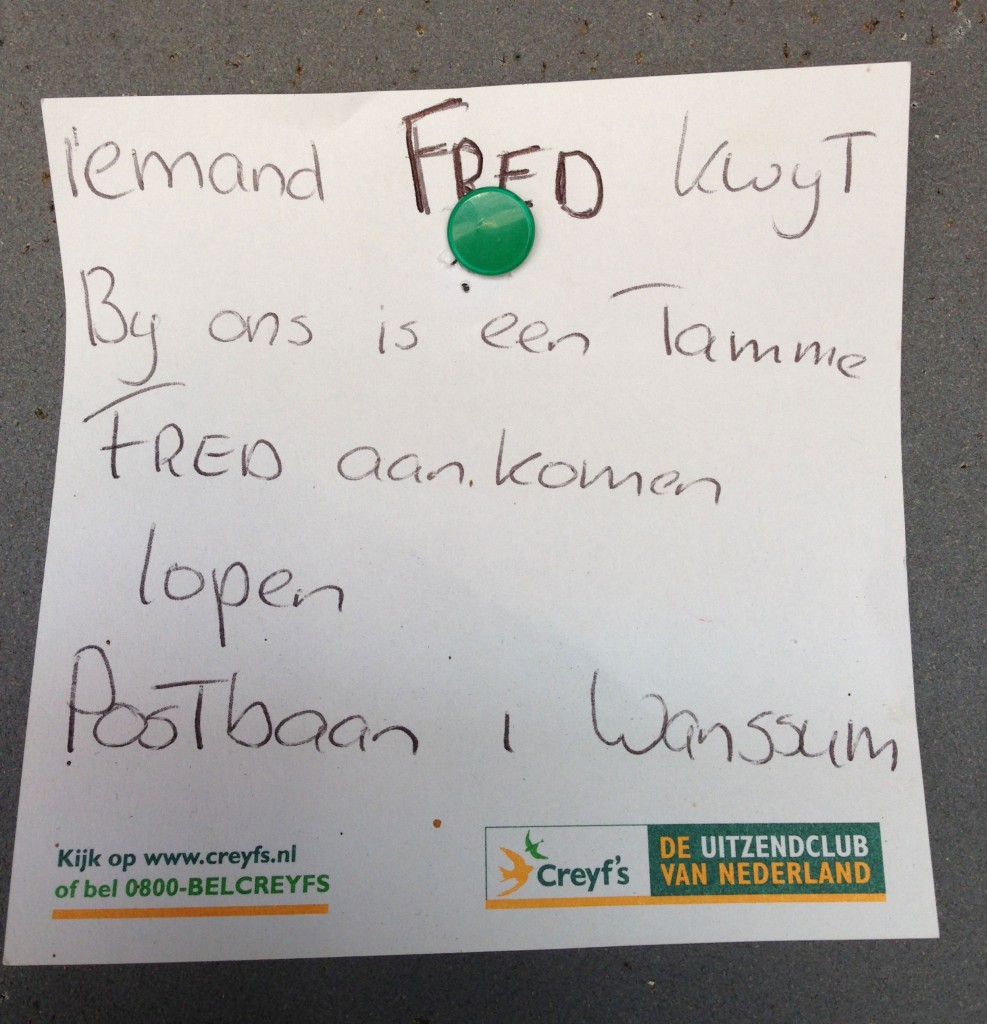 iemand FRED kwyT
By ons is een Tamme
FRED aan komen
lopen
PosTbaan 1 Wanssum
Kijk op www.creyfs.nl
of bel 0800-BELCREYFS
Creyf's
DE UITZENDCLUB
VAN NEDERLAND